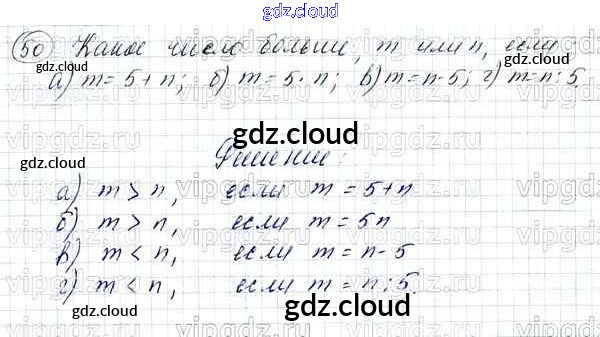 gdz.cloud
50 Какое число больше, m или n, если
gdz.cloud gdz.cloud
а) m = 5 + n; б) m = 5 · n; в) m = n - 5; г) m = n : 5.
gdz.cloud
gdz.cloud
Решение:
gdz.cloud
а) m > n, если m = 5 + n
б) m > n, если m = 5n
в) m < n, если m = n - 5
г) m < n, если m = n : 5.
gdz.cloud gdz.cloud
gdz.cloud